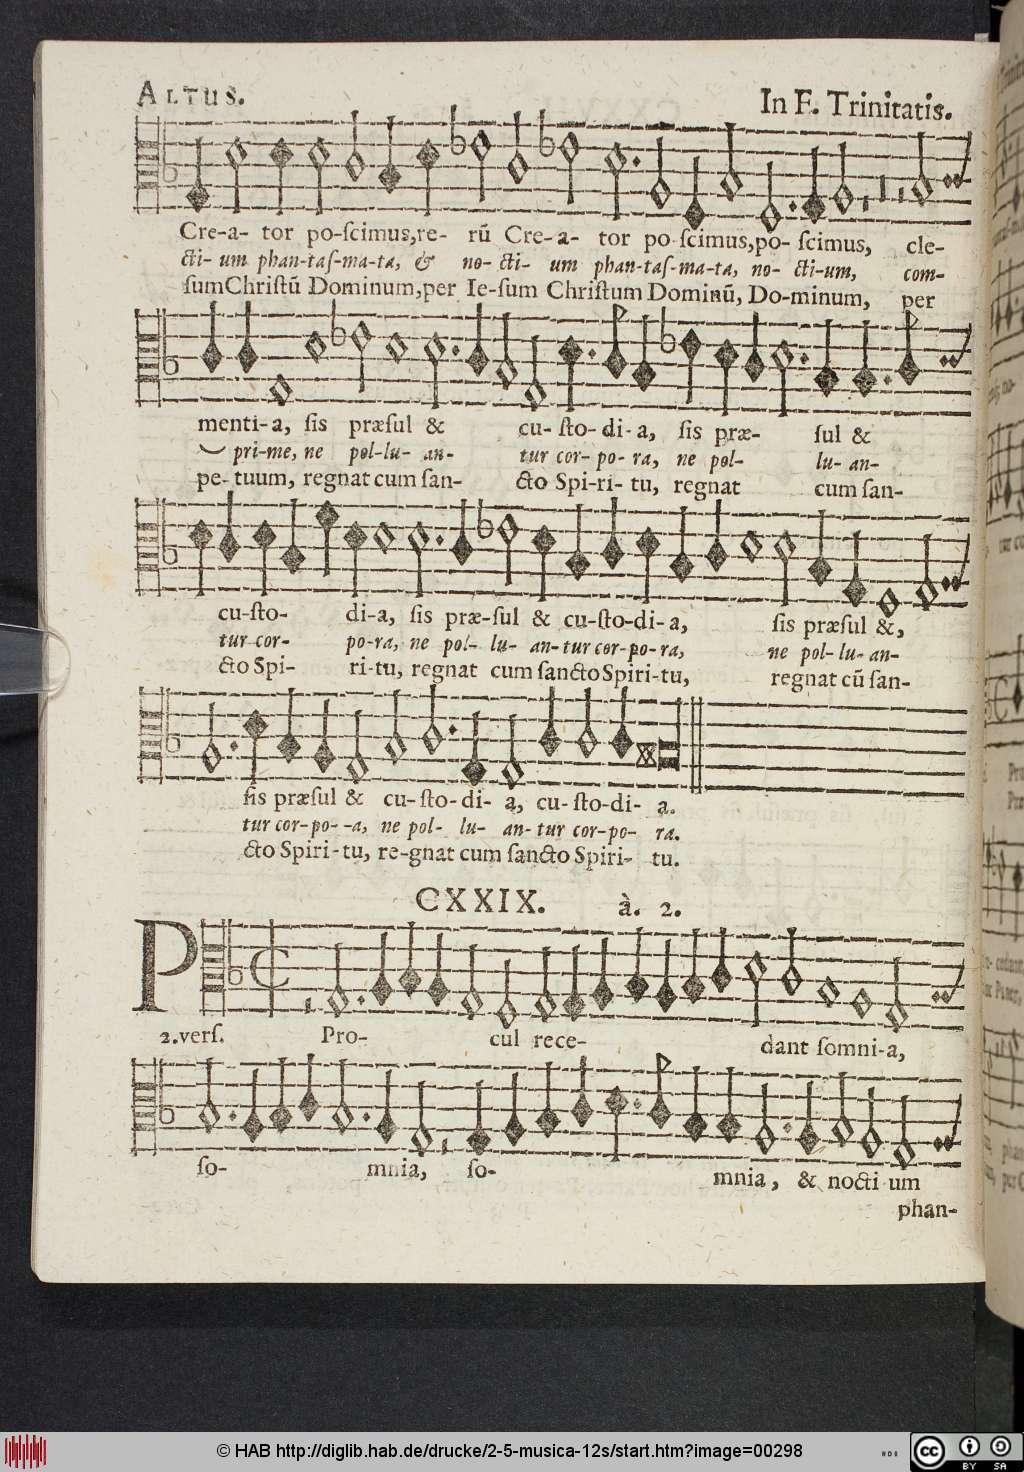 ALTUS. In F. Trinitatis.
Cre-a- tor po-ſcimus,re- rū Cre-a- tor po ſcimus,po- ſcimus, cle-
cti- um phan-taſ-ma-ta, & no-cti- um phan-taſ-ma-ta, no- cti-um, com-
ſumChriſtū Dominum,per Ie-ſum Chriſtum Dominū, Do-minum, per
menti-a, ſis præſul & cu- ſto-di-a, ſis præ- ſul &
pri-me, ne pol-lu- an- tur cor-po-ra, ne pol- lu- an-
pe-tuum, regnat cum ſan- cto Spi-ri-tu, regnat cum ſan-
cu-ſto- di-a, ſis præ-ſul & cu-ſto-di-a, ſis præſul &,
tur cor- po-ra, ne pol- lu- an-tur cor-po-ra, ne pol-lu-an-
cto Spi- ri-tu, regnat cum ſanctoSpiri-tu, regnat cū ſan-
ſis præſul & cu-ſto-di- a, cu-ſto-di- a.
tur cor-po- -a, ne pol- lu- an-tur cor-po- ra.
cto Spiri-tu, re-gnat cum ſancto Spiri- tu.
CXXIX. à. 2.
P
2.verſ. Pro- cul rece- dant ſomni-a,
ſo- mnia, ſo- mnia, & nocti um
phan-
© HAB http://diglib.hab.de/drucke/2-5-musica-12s/start.htm?image=00298
cc BY SA